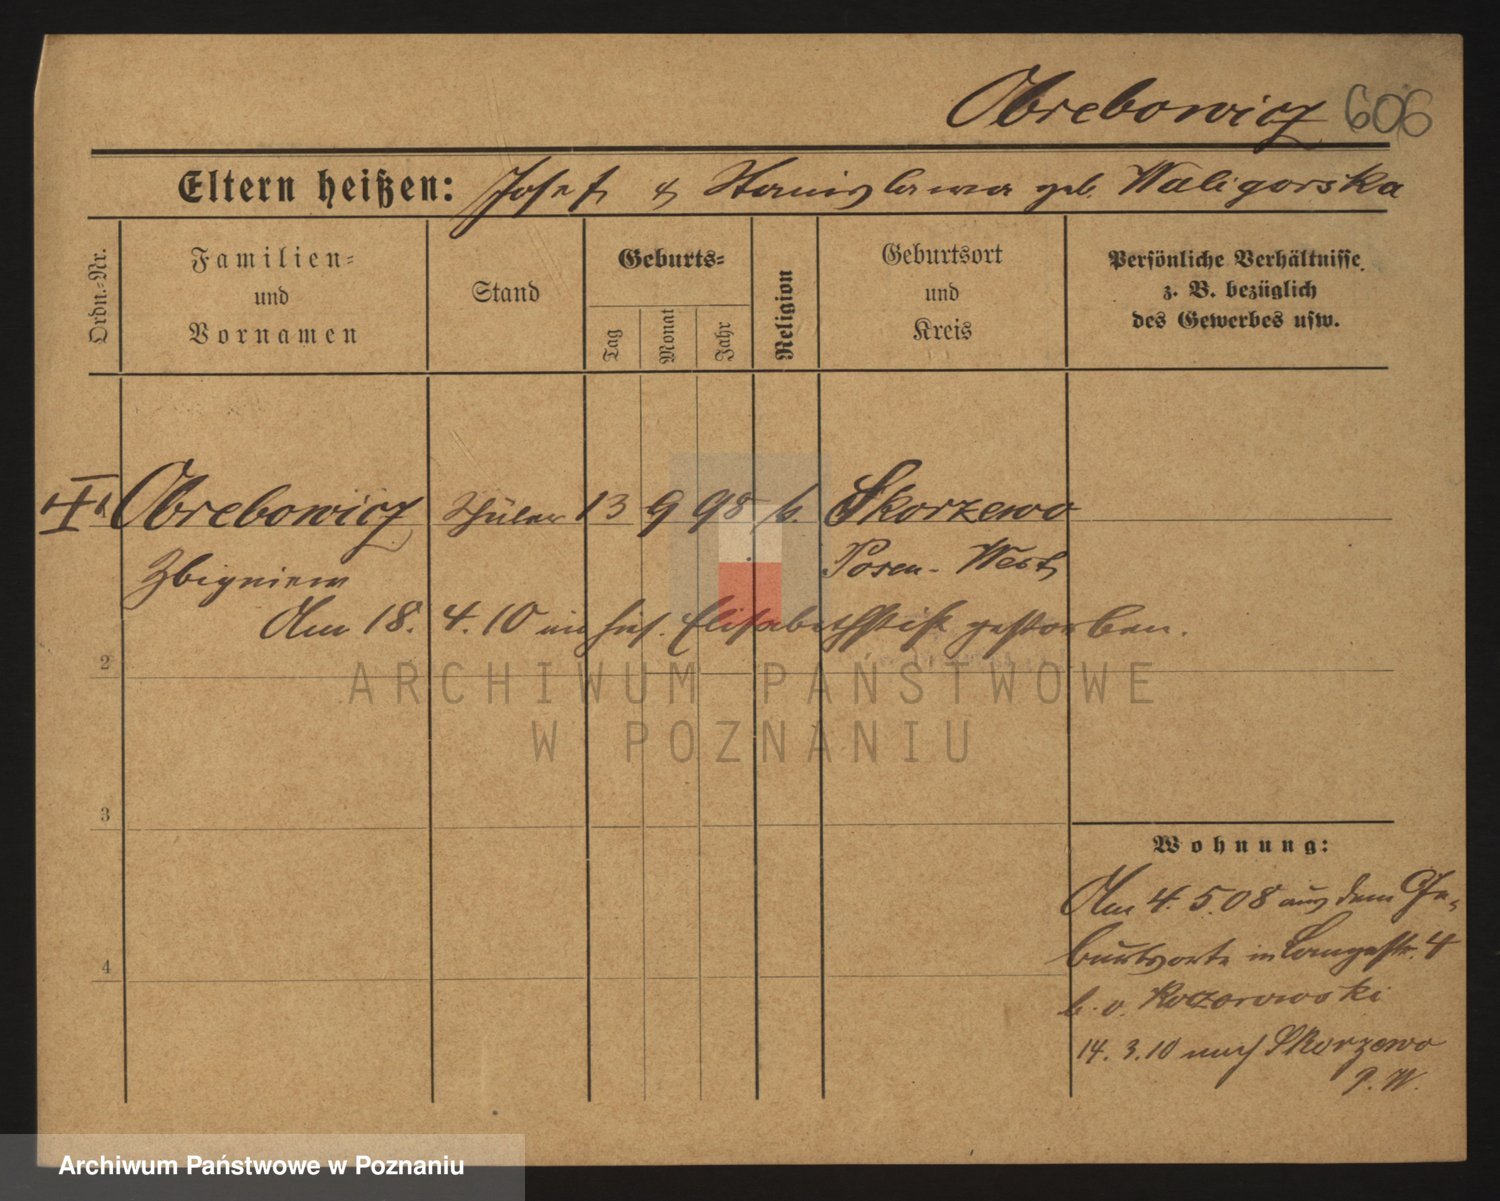 Obrebowicz 606
Eltern heißen: Josef & Stanislawa geb. Waligorska
Ordn.-Nr.
Familien-
und
Vornamen
Stand
Geburts-
Tag
Monat
Jahr
Religion
Geburtsort
und
Kreis
Persönliche Verhältnisse
z. B. bezüglich
des Gewerbes usw.
Obrebowicz Schüler 13 9 98 k. Skorzewo
Zbigniew Posen-West
Am 18. 4. 10 im hies. Elisabethstift gestorben.
2
3
4
Wohnung:
Am 4. 5. 08 aus dem Ge-
burtsorte in Langestr. 4
b. v.
14. 3. 10 nach Skorzewo
P. W.
ARCHIWUM PAŃSTWOWE
W POZNANIU
Archiwum Państwowe w Poznaniu